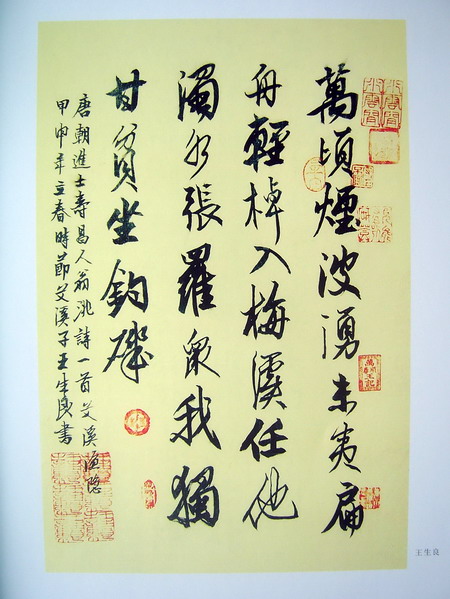 萬頃煙波湧未夷扁
舟輕棹入梅溪任他
濁水張羅衆我獨
甘貧坐釣磯
唐朝進士壽昌人翁洮詩一首艾溪漁隱
甲申年立春時節艾溪子王生良書
王生良